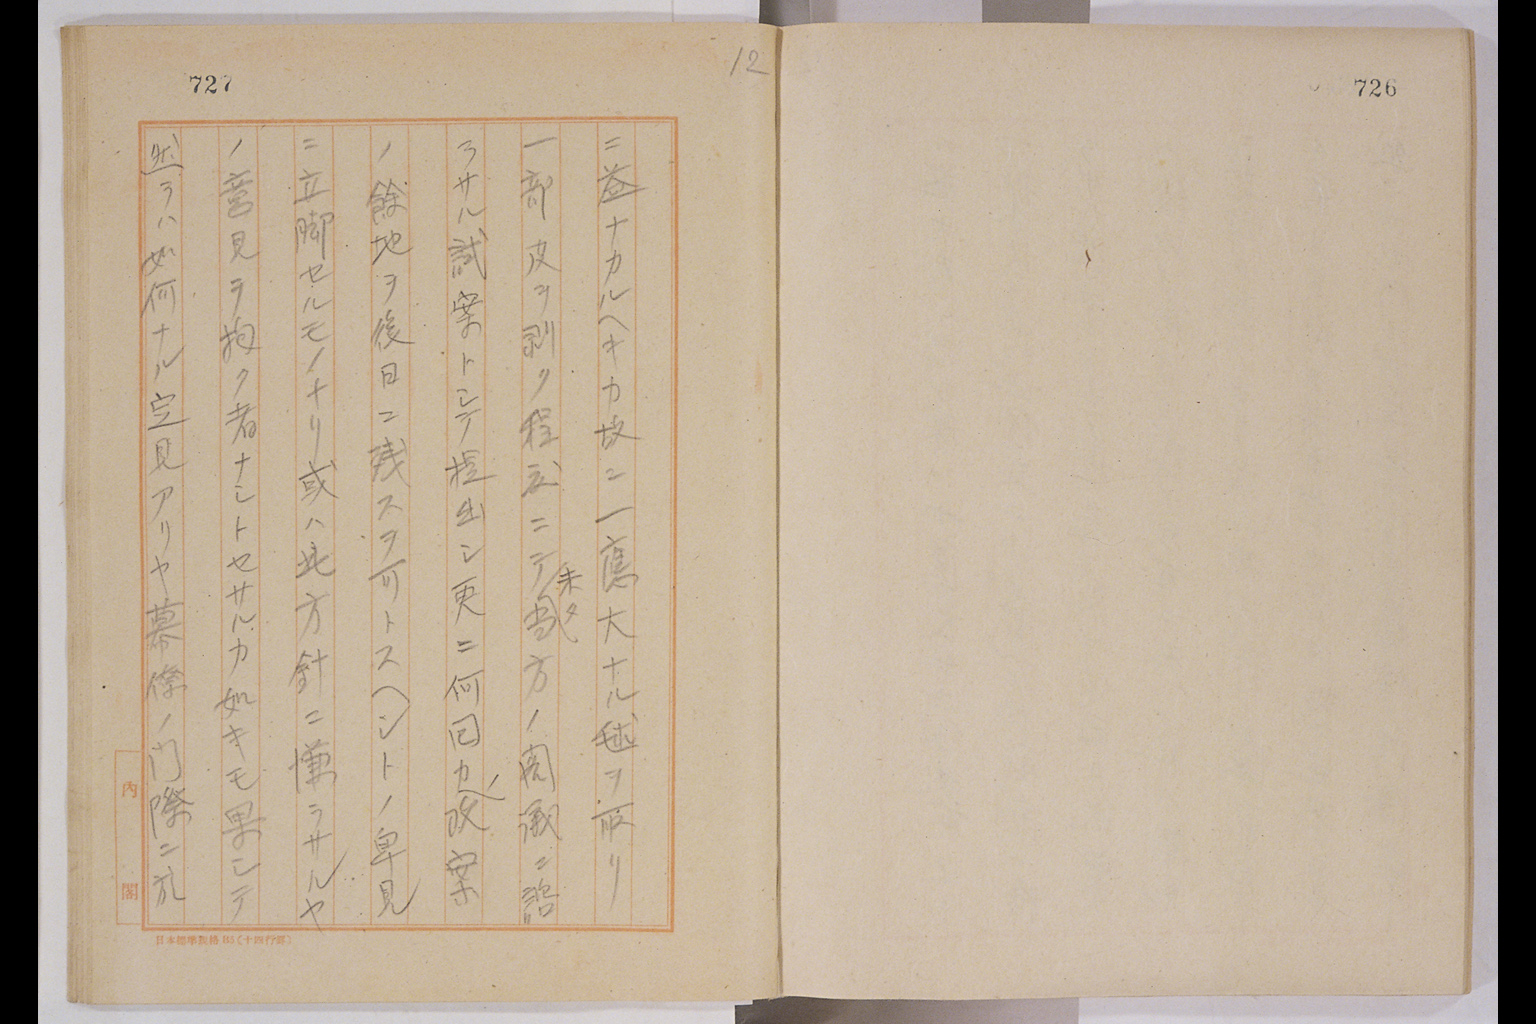 726
12
727
ニ益ナカルヘキカ故ニ一應大ナル毬ヲ取リ
一部皮ヲ剥ク程度ニテ未タ当方ノ閣議ニ諮
ラサル試案トシテ提出シ更ニ何回カノ改案
ノ餘地ヲ後日ニ残スヲ可トスヘシトノ卑見
ニ立脚セルモノナリ或ハ此方針ニ慊ラサルヤ
ノ意見ヲ抱ク者ナシトセサルカ如キモ果シテ
然ラハ如何ナル定見アリヤ幕僚ノ門際ニ於
内閣
日本標準規格B5(十四行罫)